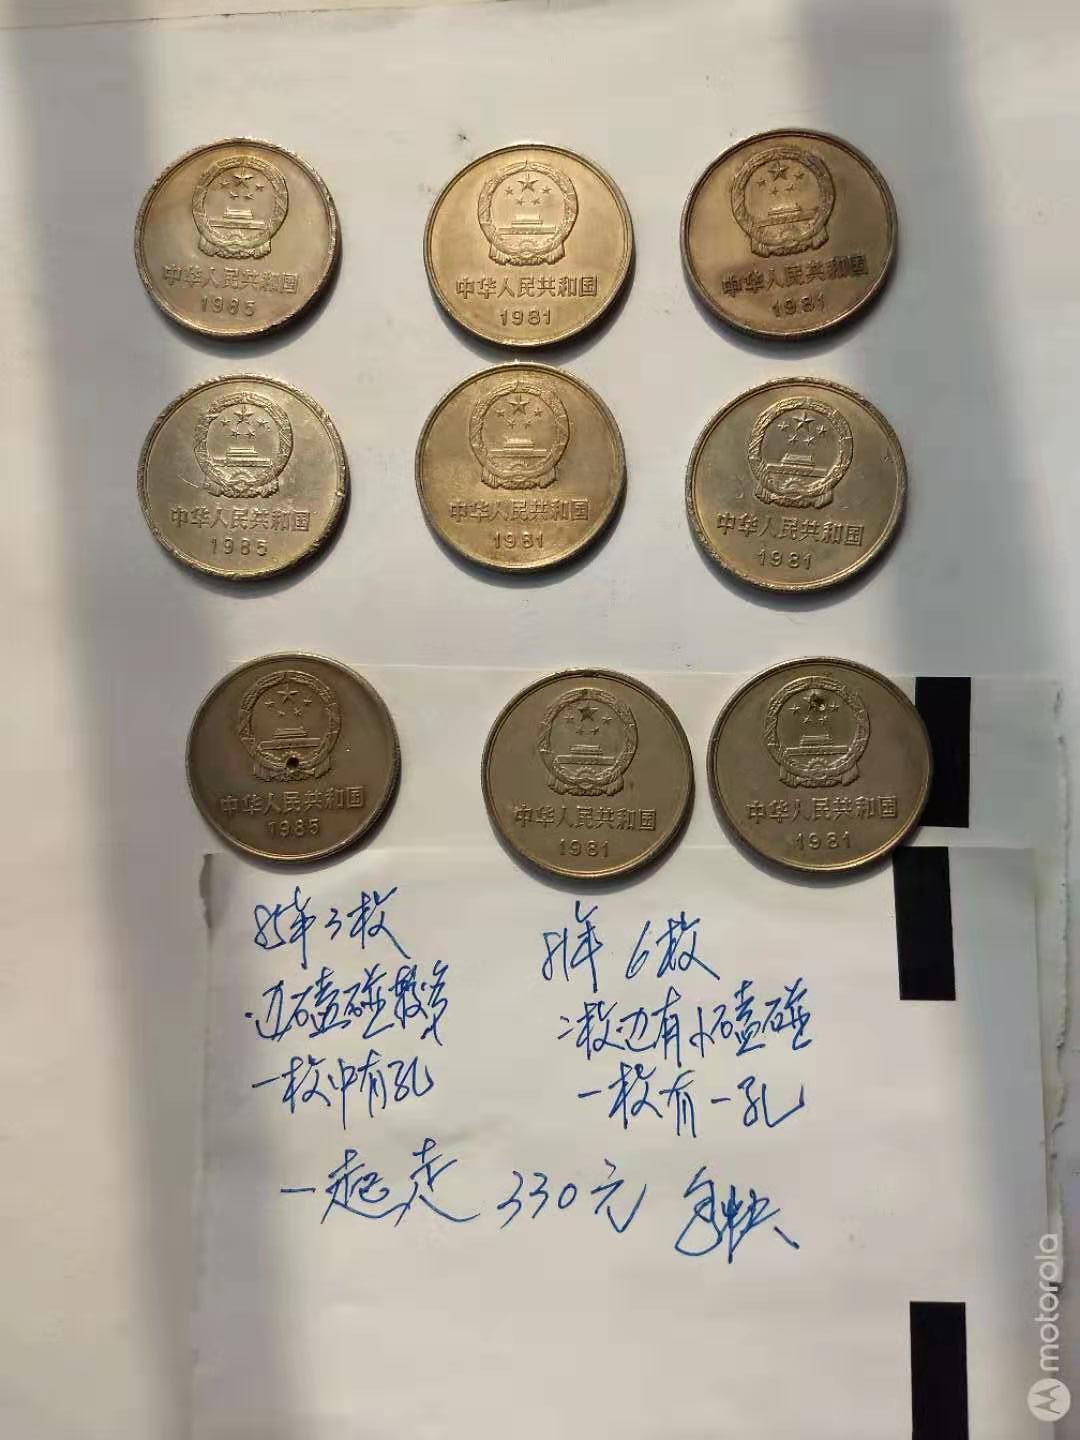 中华人民共和国
1985
中华人民共和国
1981
中华人民共和国
1981
中华人民共和国
1985
中华人民共和国
1981
中华人民共和国
1981
中华人民共和国
1985
中华人民共和国
1981
中华人民共和国
1981
85年3枚
边磕碰较多
一枚中有孔
81年6枚
二枚边有小磕碰
一枚有一孔
一起走 330元
motorola